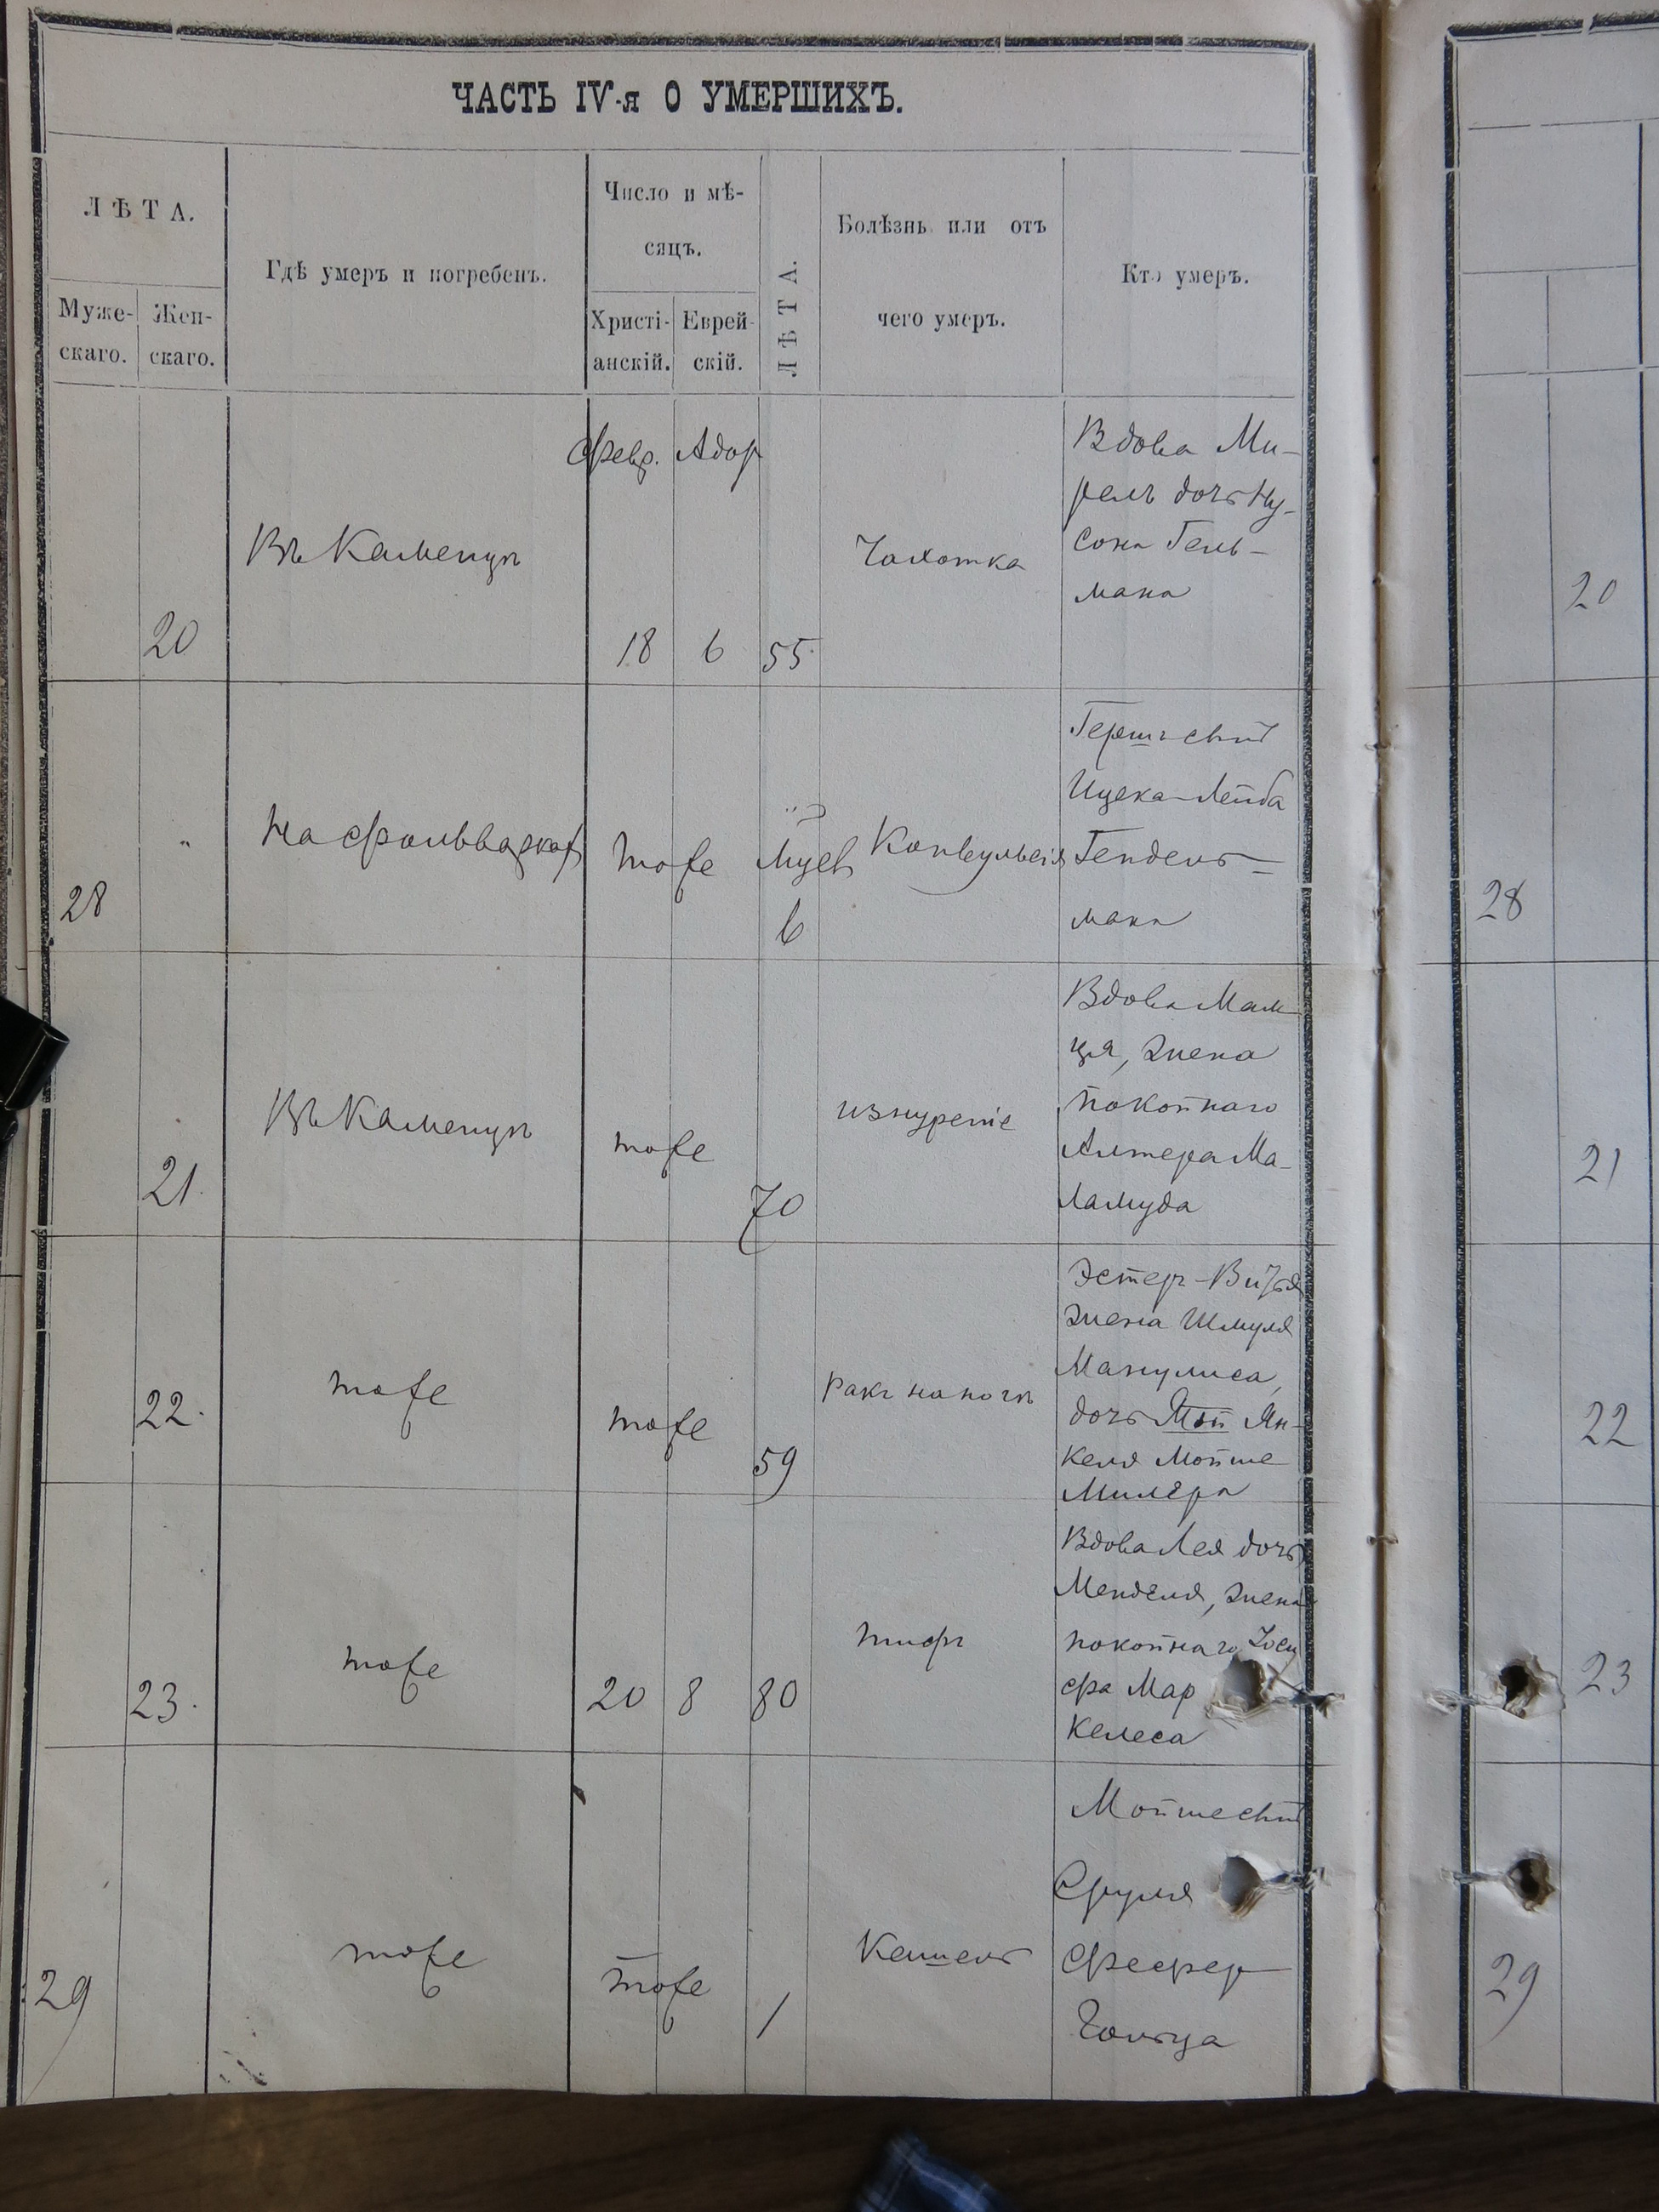 ЧАСТЬ IV-я О УМЕРШИХЪ.
ЛѢТА.
Муже-
скаго.
Жен-
скаго.
Гдѣ умеръ и погребенъ.
Число и мѣ-
сяцъ.
Христі-
анскій.
Еврей-
скій.
ЛѢТА.
Болѣзнь или отъ
чего умеръ.
Кто умеръ.
20
Въ Каменцѣ
Февр. Адор
18 6 55
Чахотка
Вдова Ми-
рель дочь Ну-
сона Гель-
мана
20
28
На Фольваркахъ
тоже
Мцев
6
Конвульсія
Гершъ сынъ
Ицека-Лейба
Гендель-
мана
28
21.
Въ Каменцѣ
тоже
70
изнуреніе
Вдова Мам-
ця, жена
покойнаго
Алтера Ма-
ламуда
21
22.
тоже
тоже
59
ракъ на ногѣ
Эстеръ-
жена Шмуля
Манулиса,
дочь Мой Ян-
келя Мойше
Милера
22
23.
тоже
20 8 80
тифъ
Вдова Лея дочь
Менделя, жена
покойнаго Іоси
фа Мар
келеса
23
29
тоже
тоже
1
Кашель
Мойше сынъ
Сруля
Фефер
гольца
29